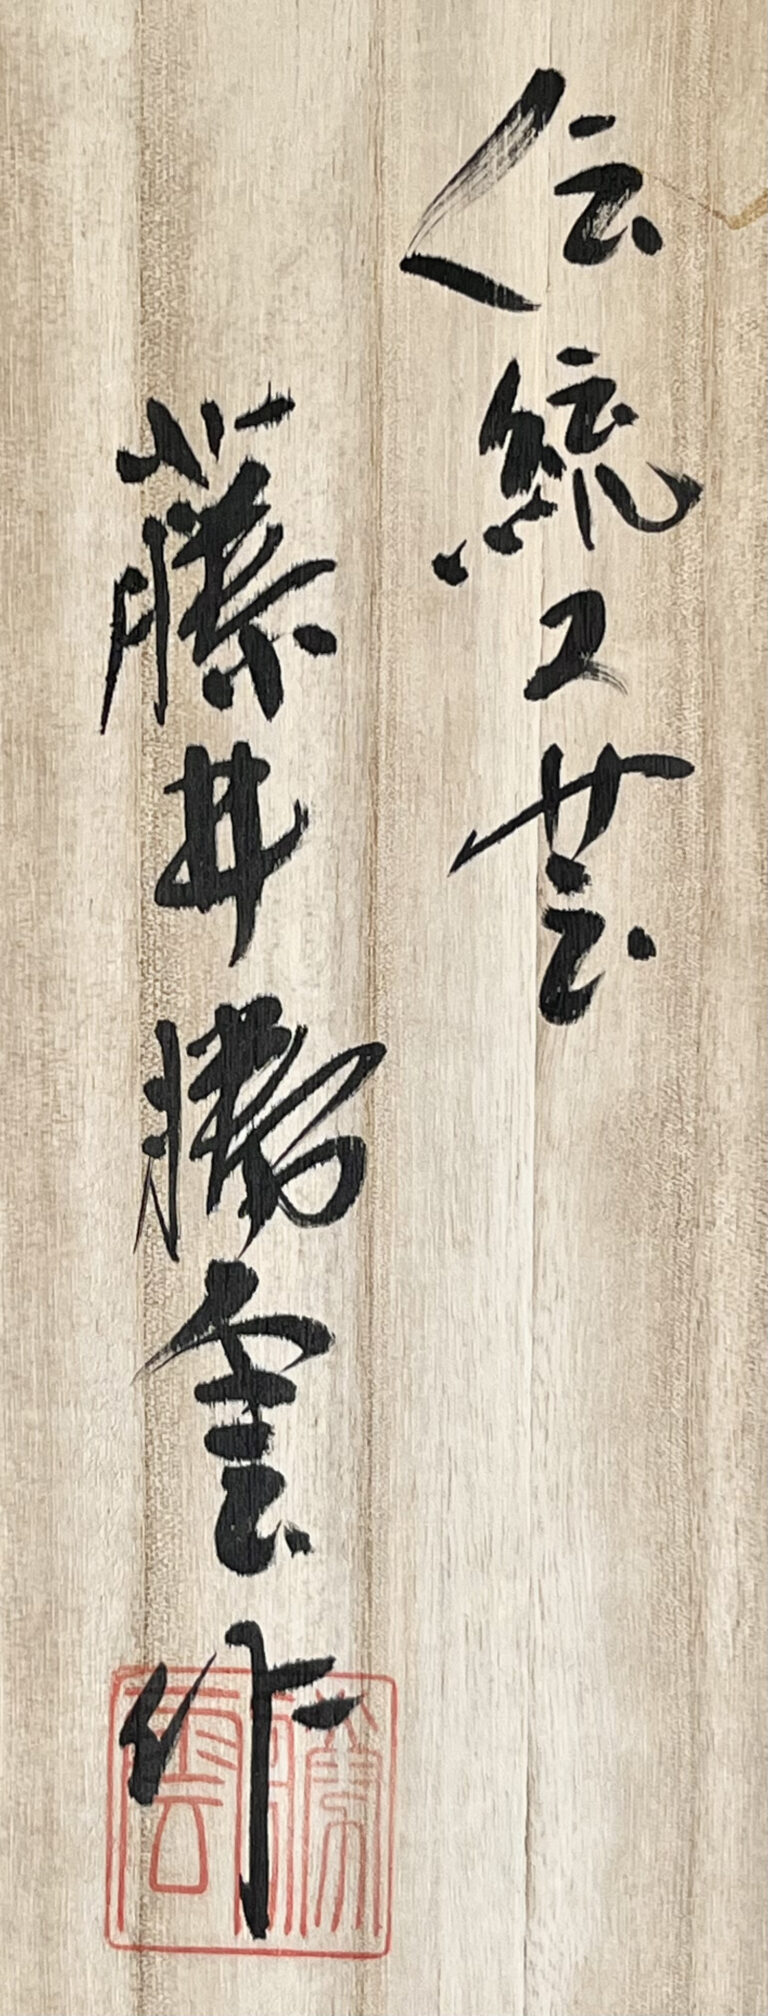 伝統工芸
藤井勝雲作
勝雲